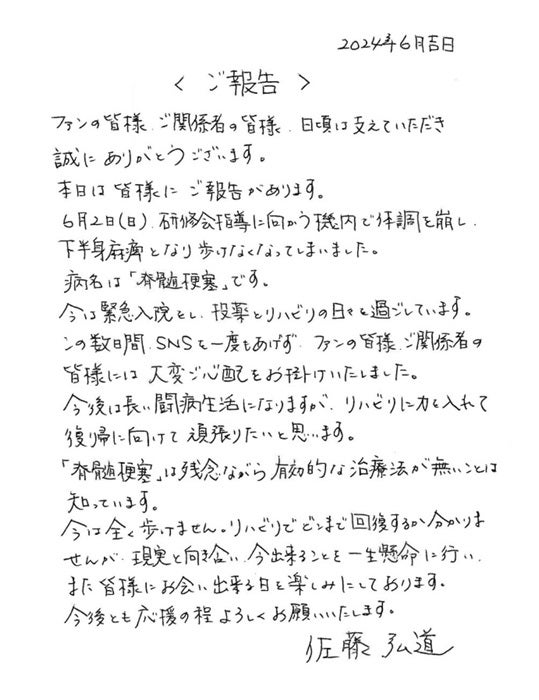 2024年6月吉日
< ご報告 >
ファンの皆様、ご関係者の皆様、日頃は支えていただき
誠にありがとうございます。
本日は皆様にご報告があります。
6月2日(日)、研修会指導に向かう機内で体調を崩し、
下半身麻痺となり歩けなくなってしまいました。
病名は「脊髄梗塞」です。
今は緊急入院とし、投薬とリハビリの日々を過ごしています。
この数日間、SNSを一度もあげず、ファンの皆様、ご関係者の
皆様には大変ご心配をお掛けいたしました。
今後は長い闘病生活になりますが、リハビリに力を入れて
復帰に向けて頑張りたいと思います。
「脊髄梗塞」は残念ながら有効的な治療法が無いことは
知っています。
今は全く歩けません。リハビリでどこまで回復するか分かりま
せんが、現実と向き合い、今出来ることを一生懸命に行い、
また皆様にお会い出来る日を楽しみにしております。
今後とも応援の程よろしくお願いいたします。
佐藤弘道